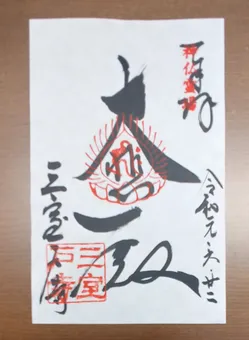 奉拝
神仏霊場
令和元・六・廿二
大悲殿
三室戸寺
三室戸寺